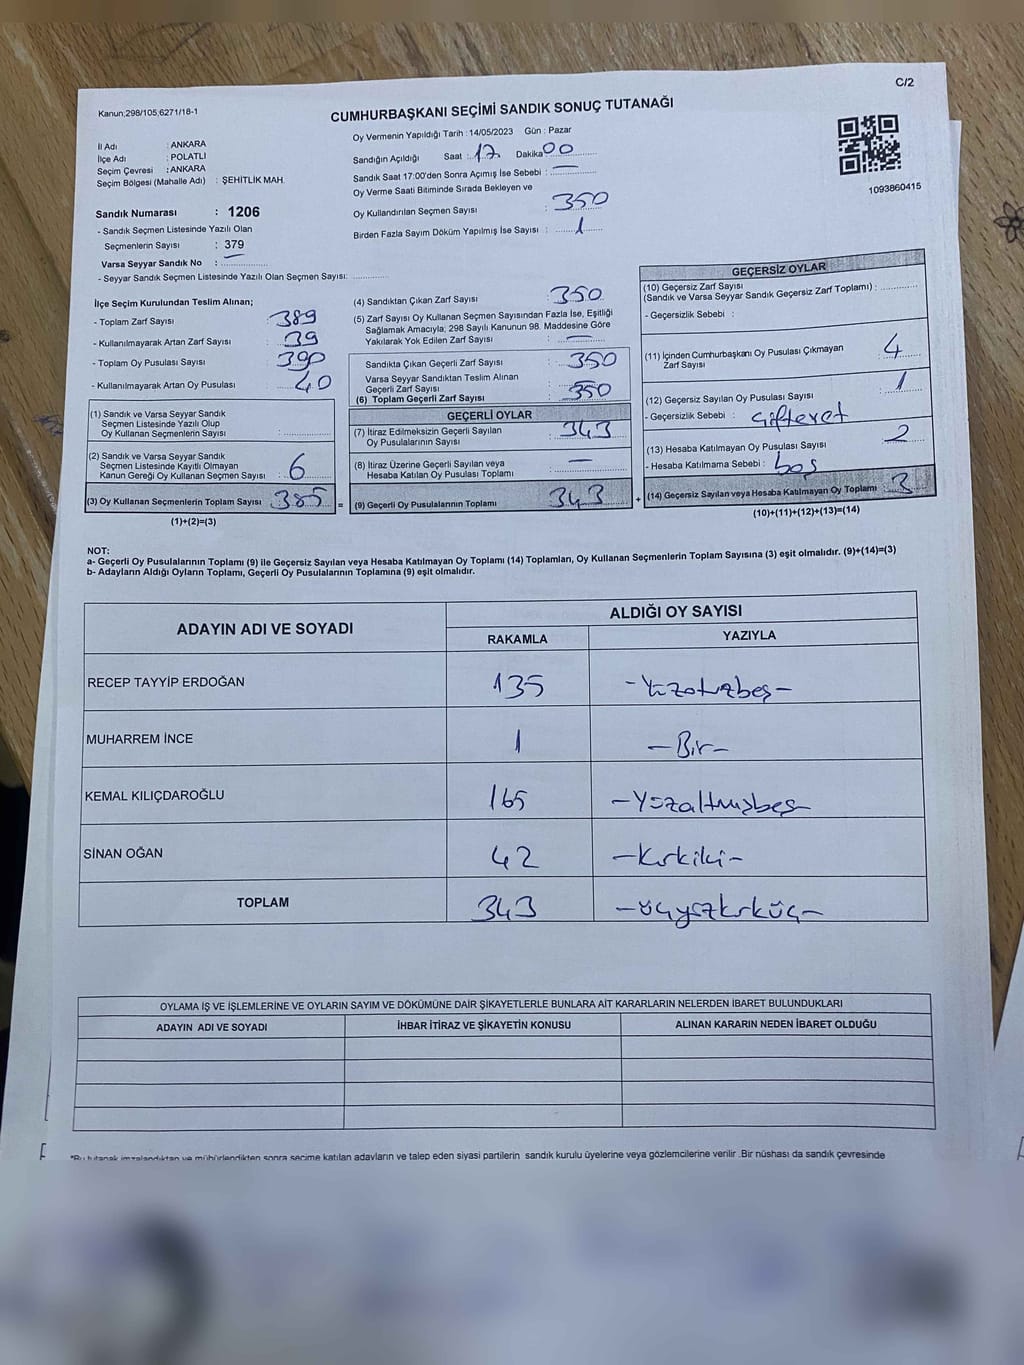 C/2
Kanun;298/105;6271/18-1
CUMHURBAŞKANI SEÇİMİ SANDIK SONUÇ TUTANAĞI
İl Adı : ANKARA
İlçe Adı : POLATLI
Seçim Çevresi : ANKARA
Seçim Bölgesi (Mahalle Adı) : ŞEHİTLİK MAH.
Sandık Numarası : 1206
- Sandık Seçmen Listesinde Yazılı Olan
Seçmenlerin Sayısı : 379
Varsa Seyyar Sandık No :
- Seyyar Sandık Seçmen Listesinde Yazılı Olan Seçmen Sayısı:
Oy Vermenin Yapıldığı Tarih : 14/05/2023 Gün : Pazar
Sandığın Açıldığı Saat : 17 Dakika 00
Sandık Saat 17:00'den Sonra Açımış İse Sebebi : —
Oy Verme Saati Bitiminde Sırada Bekleyen ve
Oy Kullandırılan Seçmen Sayısı : 350
Birden Fazla Sayım Döküm Yapılmış İse Sayısı : 1
1093860415
İlçe Seçim Kurulundan Teslim Alınan;
- Toplam Zarf Sayısı : 389
- Kullanılmayarak Artan Zarf Sayısı : 39
- Toplam Oy Pusulası Sayısı : 390
- Kullanılmayarak Artan Oy Pusulası : 40
(1) Sandık ve Varsa Seyyar Sandık
Seçmen Listesinde Yazılı Olup
Oy Kullanan Seçmenlerin Sayısı :
(2) Sandık ve Varsa Seyyar Sandık
Seçmen Listesinde Kayıtlı Olmayan
Kanun Gereği Oy Kullanan Seçmen Sayısı : 6
(3) Oy Kullanan Seçmenlerin Toplam Sayısı 385 =
(1)+(2)=(3)
(4) Sandıktan Çıkan Zarf Sayısı : 350
(5) Zarf Sayısı Oy Kullanan Seçmen Sayısından Fazla İse, Eşitliği
Sağlamak Amacıyla; 298 Sayılı Kanunun 98. Maddesine Göre
Yakılarak Yok Edilen Zarf Sayısı : —
Sandıkta Çıkan Geçerli Zarf Sayısı : 350
Varsa Seyyar Sandıktan Teslim Alınan
Geçerli Zarf Sayısı :
(6) Toplam Geçerli Zarf Sayısı : 350
GEÇERLİ OYLAR
(7) İtiraz Edilmeksizin Geçerli Sayılan
Oy Pusulalarının Sayısı : 343
(8) İtiraz Üzerine Geçerli Sayılan veya
Hesaba Katılan Oy Pusulası Toplamı : —
(9) Geçerli Oy Pusulalarının Toplamı : 343 +
GEÇERSİZ OYLAR
(10) Geçersiz Zarf Sayısı
(Sandık ve Varsa Seyyar Sandık Geçersiz Zarf Toplamı) :
- Geçersizlik Sebebi :
(11) İçinden Cumhurbaşkanı Oy Pusulası Çıkmayan
Zarf Sayısı : 4
(12) Geçersiz Sayılan Oy Pusulası Sayısı : 1
- Geçersizlik Sebebi : çiftevet
(13) Hesaba Katılmayan Oy Pusulası Sayısı : 2
- Hesaba Katılmama Sebebi : boş
(14) Geçersiz Sayılan veya Hesaba Katılmayan Oy Toplamı : 3
(10)+(11)+(12)+(13)=(14)
NOT:
a- Geçerli Oy Pusulalarının Toplamı (9) ile Geçersiz Sayılan veya Hesaba Katılmayan Oy Toplamı (14) Toplamları, Oy Kullanan Seçmenlerin Toplam Sayısına (3) eşit olmalıdır. (9)+(14)=(3)
b- Adayların Aldığı Oyların Toplamı, Geçerli Oy Pusulalarının Toplamına (9) eşit olmalıdır.
ADAYIN ADI VE SOYADI ALDIĞI OY SAYISI
RAKAMLA YAZIYLA
RECEP TAYYİP ERDOĞAN 135 -Yüzotuzbeş-
MUHARREM İNCE 1 -Bir-
KEMAL KILIÇDAROĞLU 165 -Yüzaltmışbeş-
SİNAN OĞAN 42 -Kırkiki-
TOPLAM 343 -üçyüzkırküç-
OYLAMA İŞ VE İŞLEMLERİNE VE OYLARIN SAYIM VE DÖKÜMÜNE DAİR ŞİKAYETLERLE BUNLARA AİT KARARLARIN NELERDEN İBARET BULUNDUKLARI
ADAYIN ADI VE SOYADI İHBAR İTİRAZ VE ŞİKAYETİN KONUSU ALINAN KARARIN NEDEN İBARET OLDUĞU
*Bu tutanak imzalandıktan ve mühürlendikten sonra seçime katılan adayların ve talep eden siyasi partilerin sandık kurulu üyelerine veya gözlemcilerine verilir .Bir nüshası da sandık çevresinde